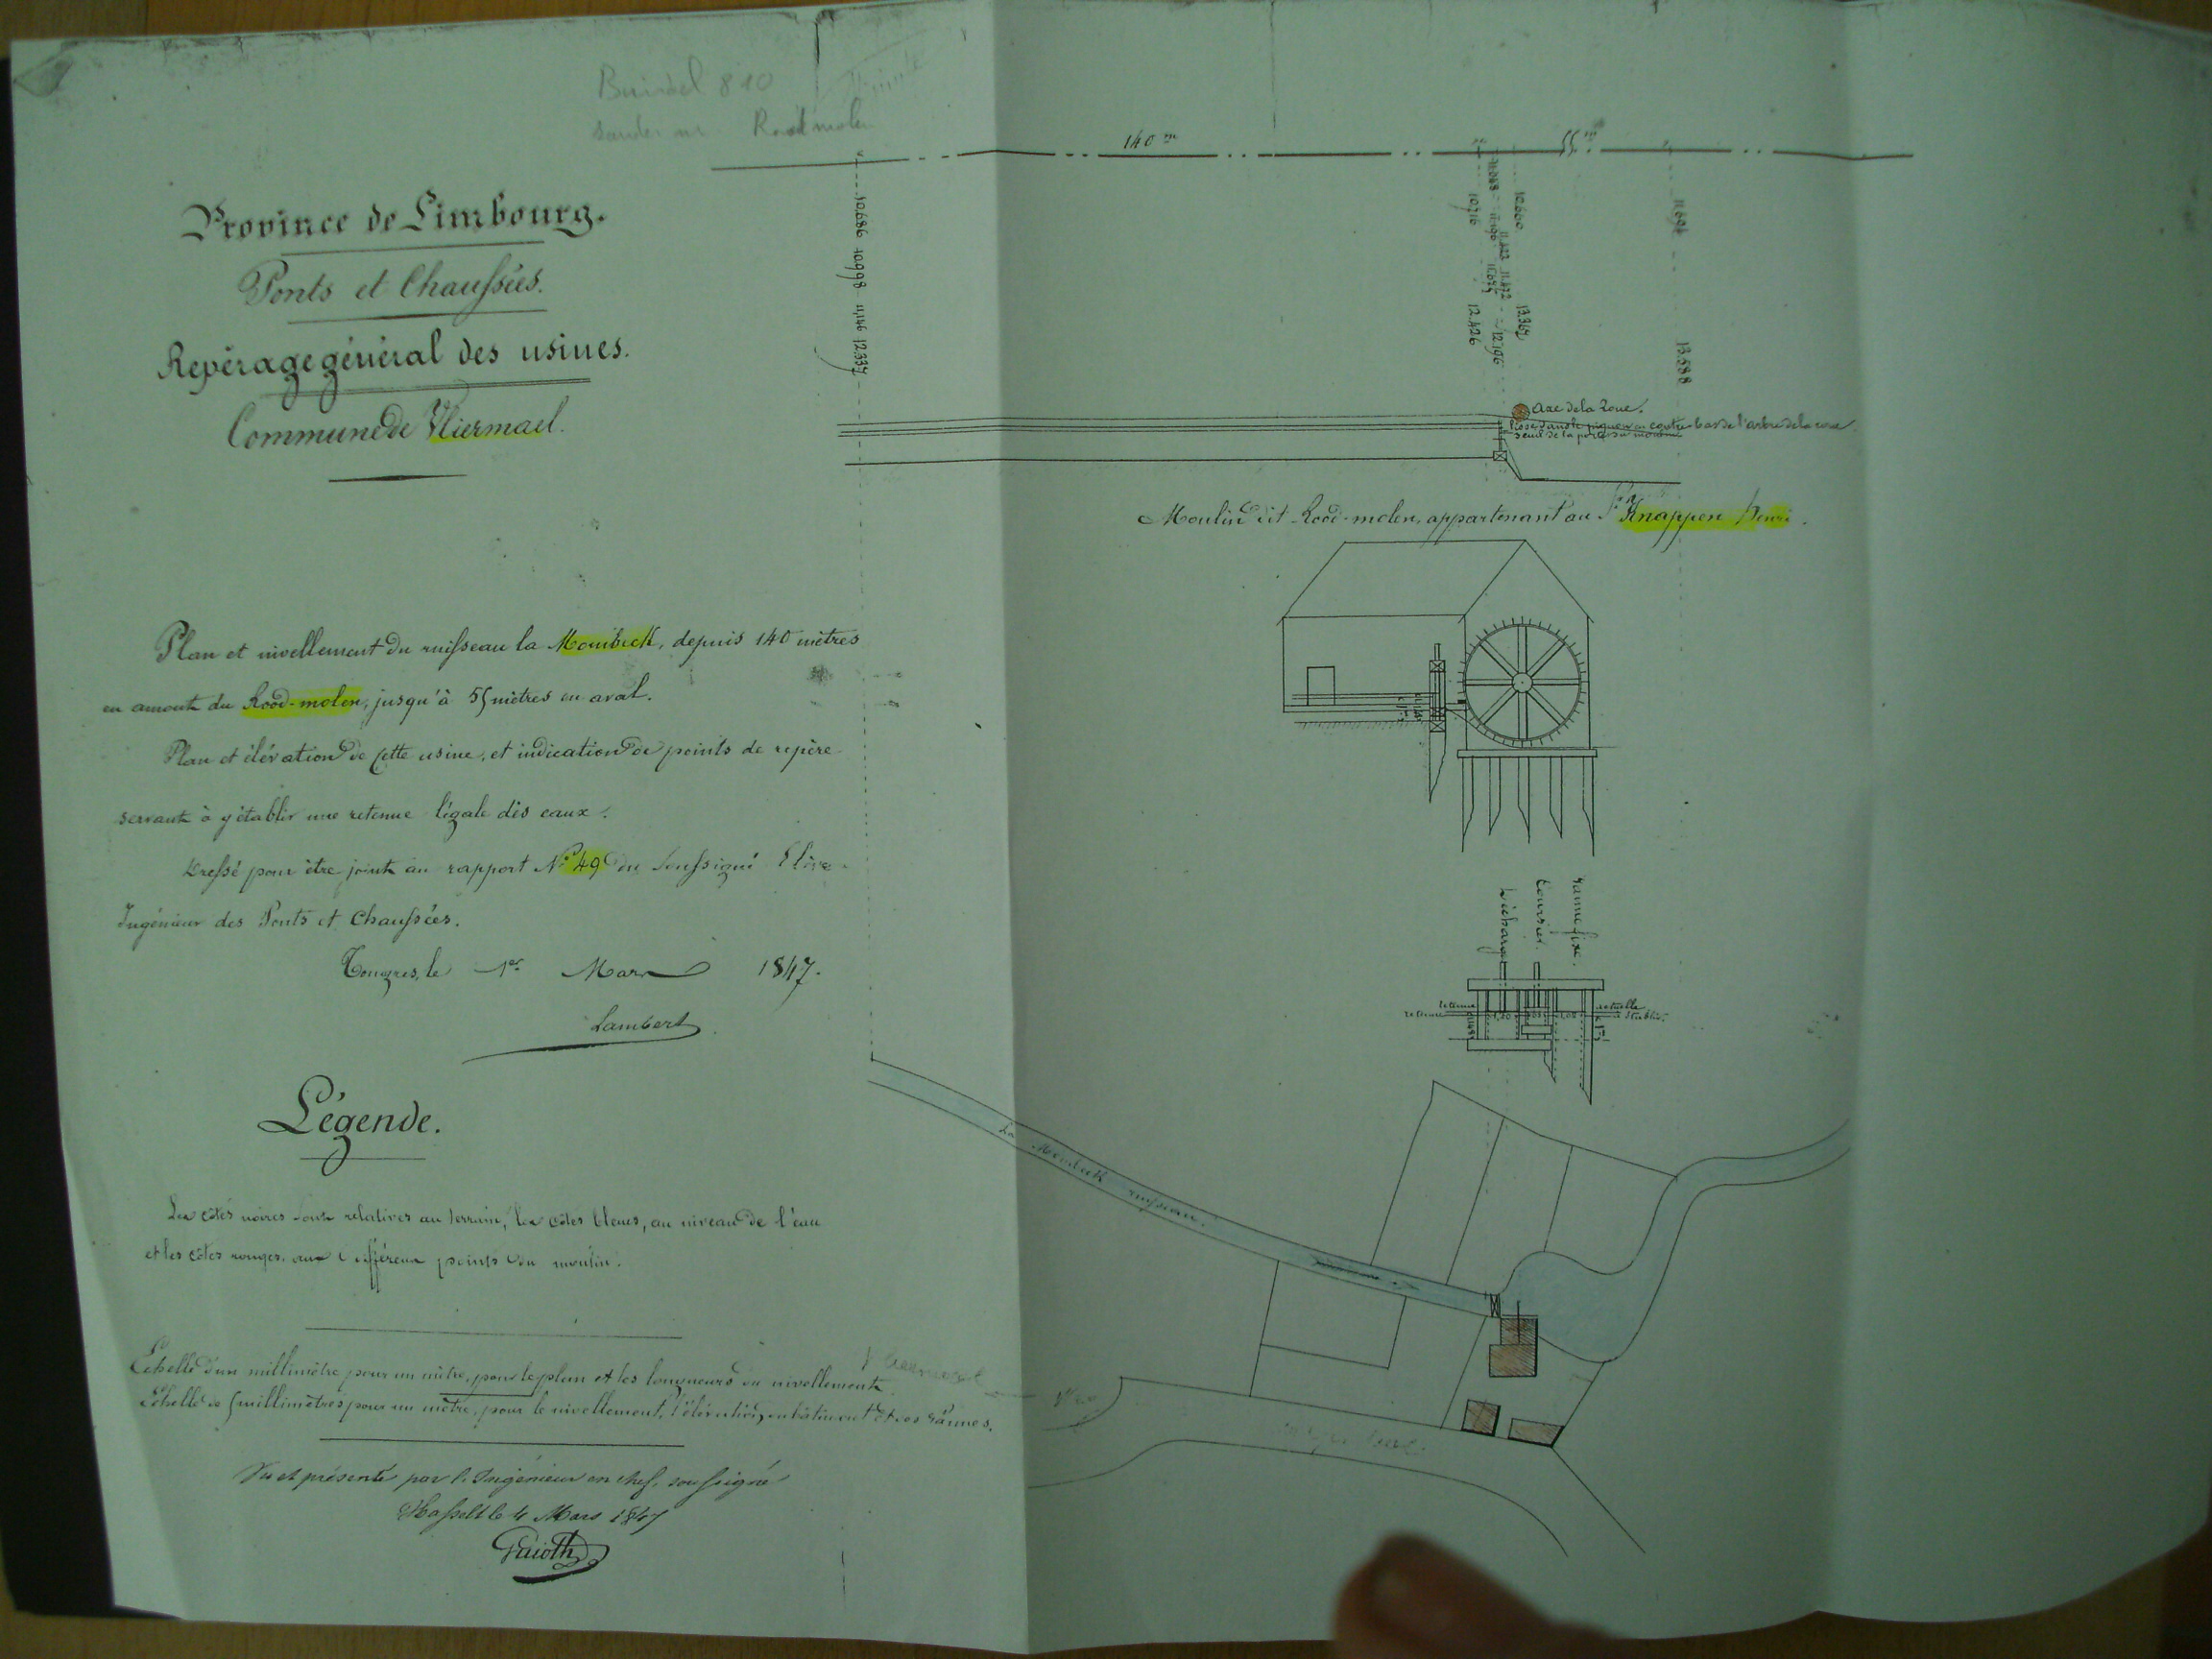 810
Rood molen
Province de Limbourg.
Ponts et Chaussées.
Repérage général des usines.
Commune de Vliermael.
Plan et nivellement du ruisseau la Mombeek, depuis 140 mètres
en amont du Rood-molen, jusqu'à 55 mètres en aval.
Plan et élévation de cette usine, et indication de points de repère
servant à y établir une retenue légale des eaux.
Dressé pour être joint au rapport No 49 du soussigné Elève
Ingénieur des Ponts et Chaussées.
Tongres, le 1er Mars 1847.
Lambert
Légende.
Les côtes noires sont relatives au terrain, les côtes bleues, au niveau de l'eau
et les côtes rouges, aux différens points du moulin.
Echelle d'un millimètre pour un mètre, pour le plan et les longueurs du nivellement.
Echelle de 5 millimètres pour un mètre, pour le nivellement, l'élévation du bâtiment et des vannes.
Vu et présenté par l'Ingénieur en chef, soussigné
Hasselt le 4 Mars 1847
140 m
55 m
10.686 10.998 11.146 12.337
10.716 12.426
11.694 13.588
Axe de la roue.
en contre-bas de l'arbre de la roue
Seuil de la porte du moulin
Moulin dit Rood-molen, appartenant au Sr Knappen Henri.
Décharge
Coursier.
Vanne fixe.
retenue actuelle
retenue à établir.
La Mombeek ruisseau.